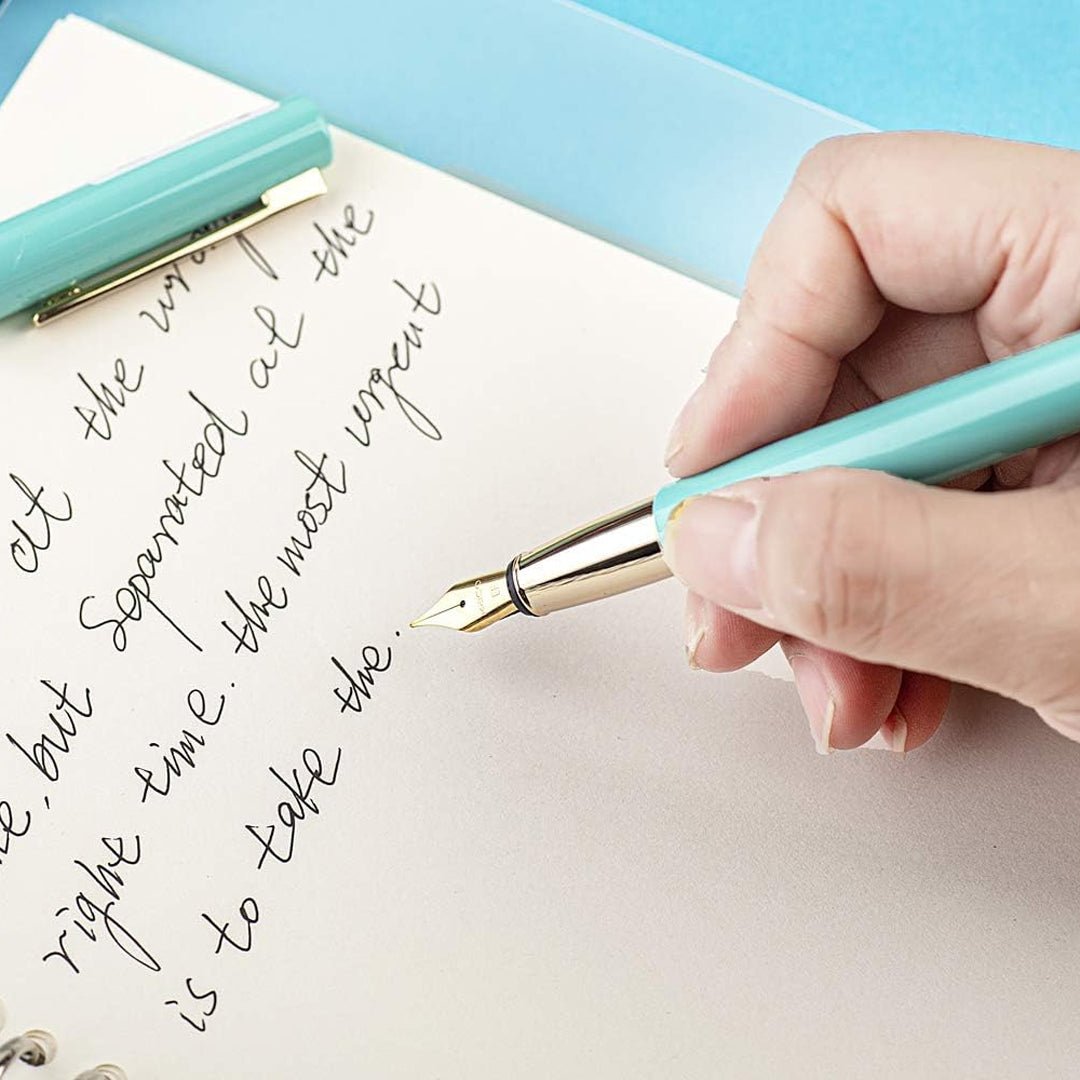 at the wrong
me, but separated at the
right time. the most urgent
is to take the.